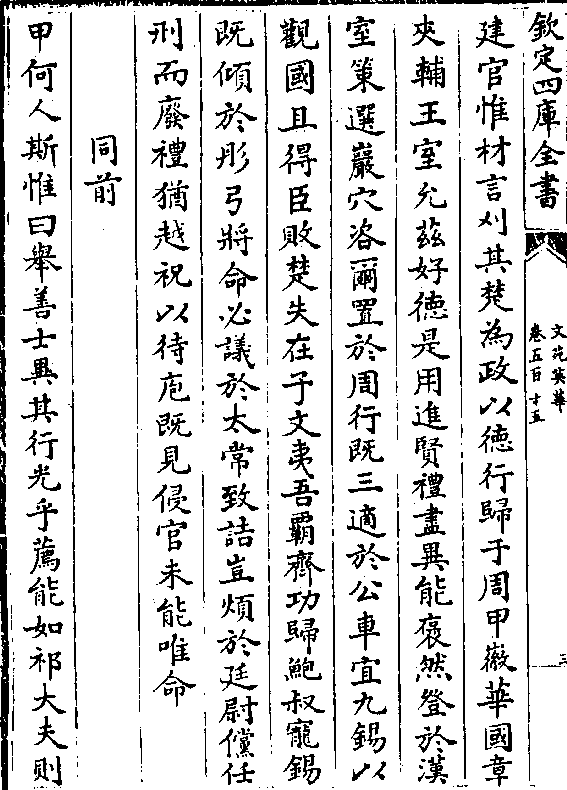 欽定四庫全書
文苑英華
卷五百十五
三
建官惟材言刈其楚為政以德行歸于周甲薇華國章
夾輔王室允茲好德是用進賢禮盡異能褒然登於漢
室策選巖穴洛爾置於周行既三適於公車宜九錫以
觀國且得臣敗楚失在子文夷吾霸齊功歸鮑叔寵錫
既傾於彤弓將命必議於太常致詰豈煩於廷尉儻任
刑而廢禮猶越祝以待庖既見侵官未能唯命
同前
甲何人斯惟曰舉善士異其行光乎薦能如祁大夫則